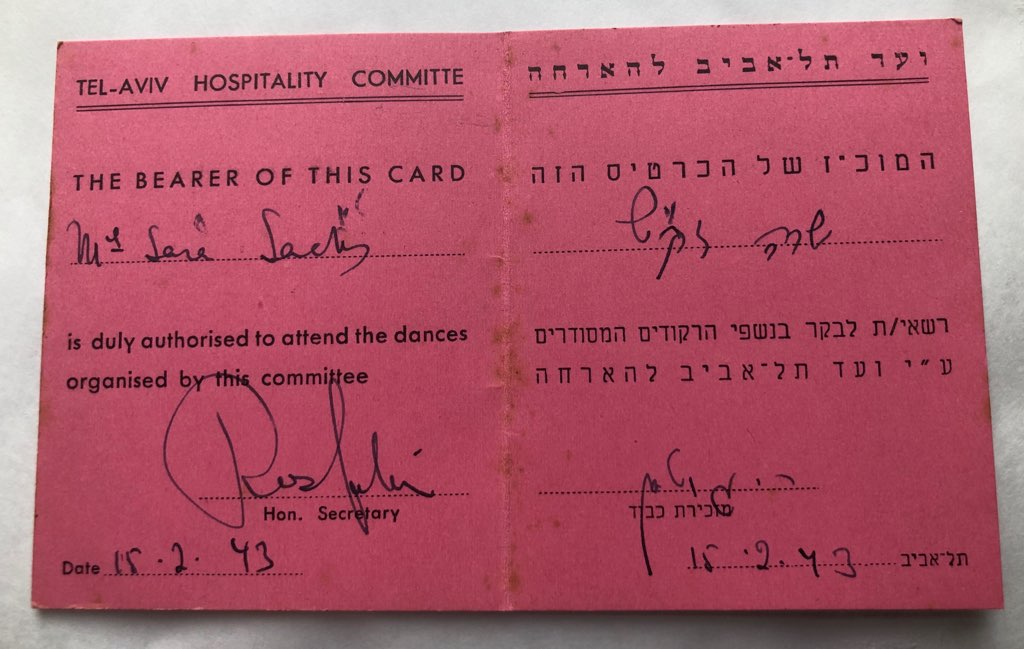 TEL-AVIV HOSPITALITY COMMITTE
THE BEARER OF THIS CARD
Mrs Sara
is duly authorised to attend the dances
organised by this committee
Hon. Secretary
Date 15.2.43
ועד תל־אביב להארחה
המוכ״ז של הכרטיס הזה
שרה
רשאי/ת לבקר בנשפי הרקודים המסודרים
ע״י ועד תל־אביב להארחה
מזכירת כבוד
תל־אביב 15.2.43